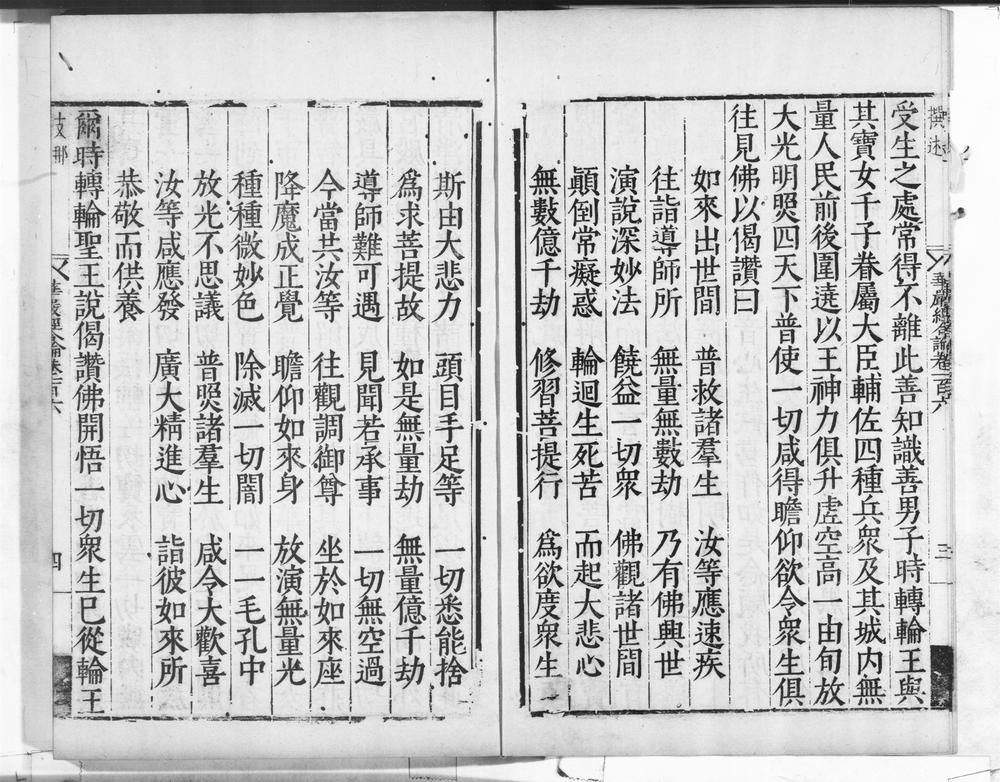 受生之處常得不離此善知識善男子時轉輪王與
其寶女千子眷屬大臣輔佐四種兵衆及其城内無
量人民前後圍遶以王神力俱升虚空高一由旬放
大光明煛四天下普使一切咸得瞻仰欲令衆生俱
往見佛以偈讚曰
如來出世間　普救諸羣生　汝等應速疾
往詣導師所　無量無數劫　乃有佛興世
演說深妙法　饒益一切衆　佛觀諸世間
顚倒常癡惑　輪迴生死苦　而起大悲心
無數億千劫　修習菩提行　爲欲度衆生
三
斯由大悲力　頭目手足等　一切悉能捨
爲求菩提故　如是無量劫　無量億千劫
導師難可遇　見聞若承事　一切無空過
今當共汝等　往觀調御尊　坐於如來座
降魔成正覺　瞻仰如來身　放演無量光
種種微妙色　除滅一切闇　一一毛孔中
放光不思議　普煛諸羣生　咸令大歡喜
汝等咸應發　廣大精進心　詣彼如來所
恭敬而供養
爾時轉輪聖王說偈讚佛開悟一切衆生已從輪王
四